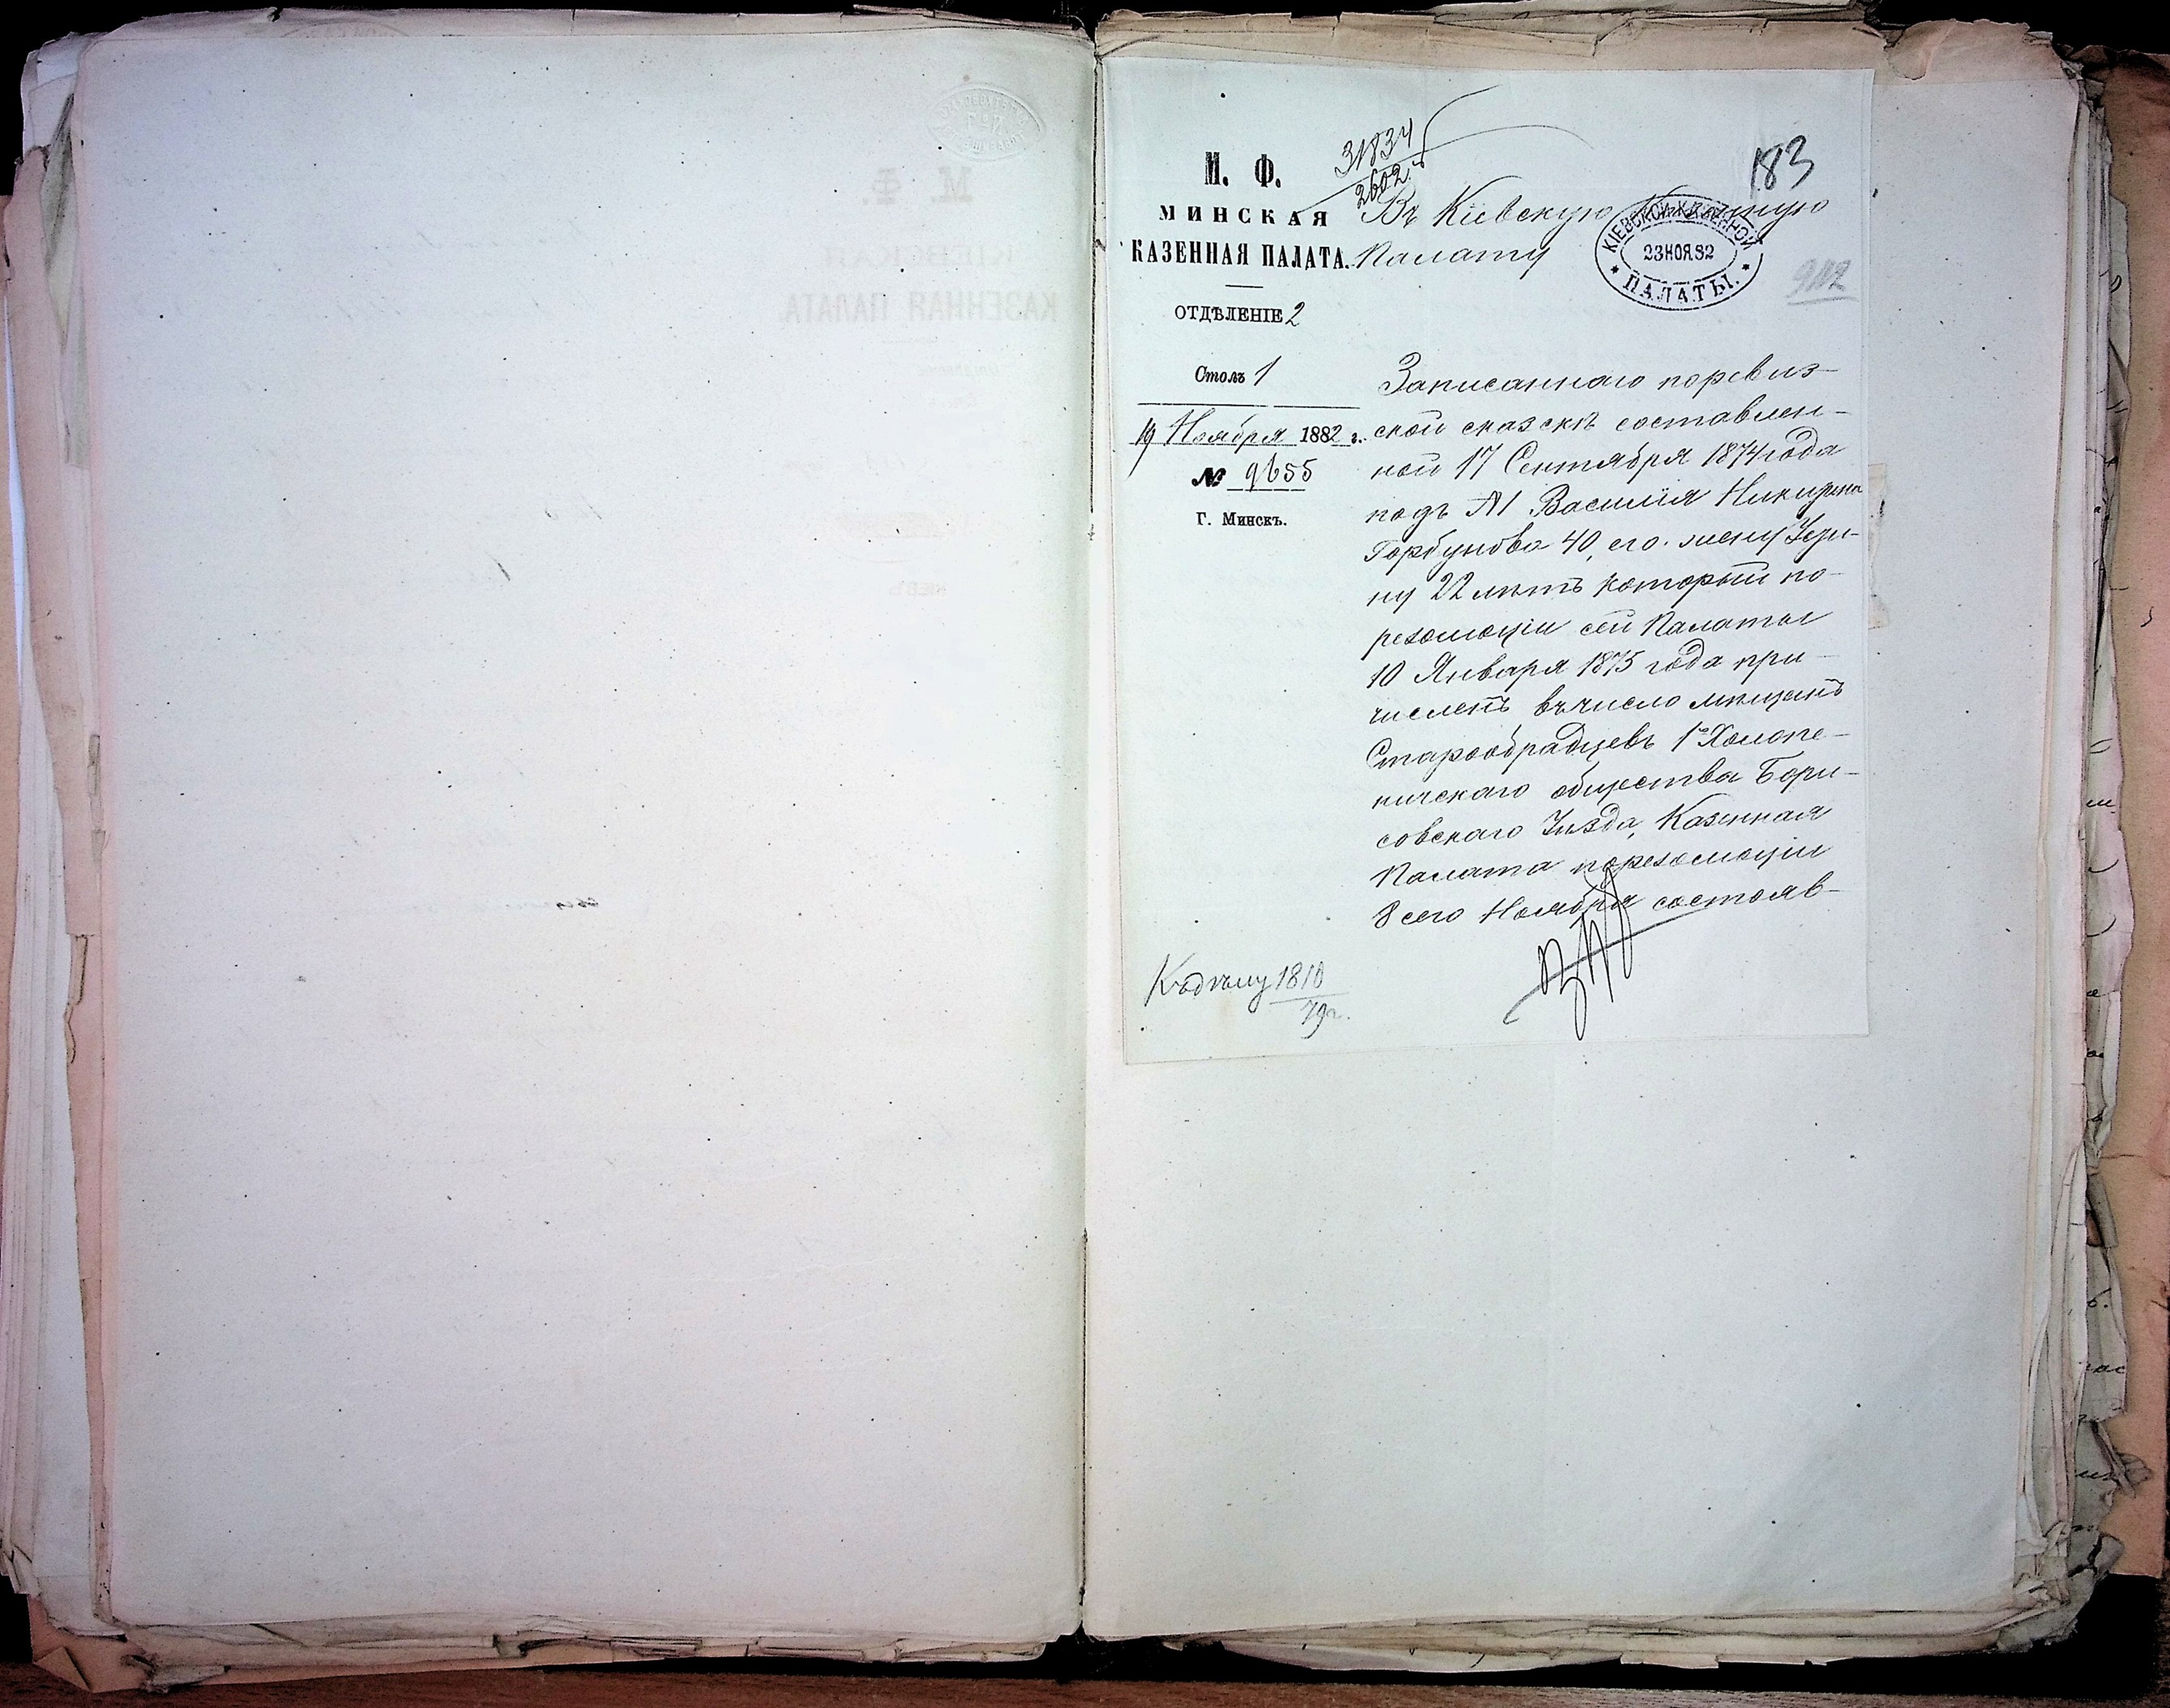 М. Ф.
МИНСКАЯ
КАЗЕННАЯ ПАЛАТА.
ОТДѢЛЕНІЕ 2
Столъ 1
19 Ноября 1882 г.
№ 9655
Г. Минскъ.
31834
2602
183
Въ Кіевскую Казенную
Палату
КІЕВСКОЙ КАЗЕННОЙ
23 НОЯ 82
ПАЛАТЫ.
912
Записаннаго поревиз-
ской сказскѣ составлен-
ной 17 Сентября 1874 года
подъ №1 Василія Никитина
Горбунова 40, его жену
ну 22 лѣтъ который по-
резолюціи сей Палаты
10 Января 1875 года при-
численъ въ число мѣщанъ
Старообрадцевъ 1го Холопе-
ничскаго общества Бори-
совскаго Уѣзда, Казенная
Палата порезолюціи
8 сего Ноября состояв-
Къ дѣлу 1810
79 г.
М. Ф.
КІЕВСКАЯ
КАЗЕННАЯ ПАЛАТА
КІЕВЪ